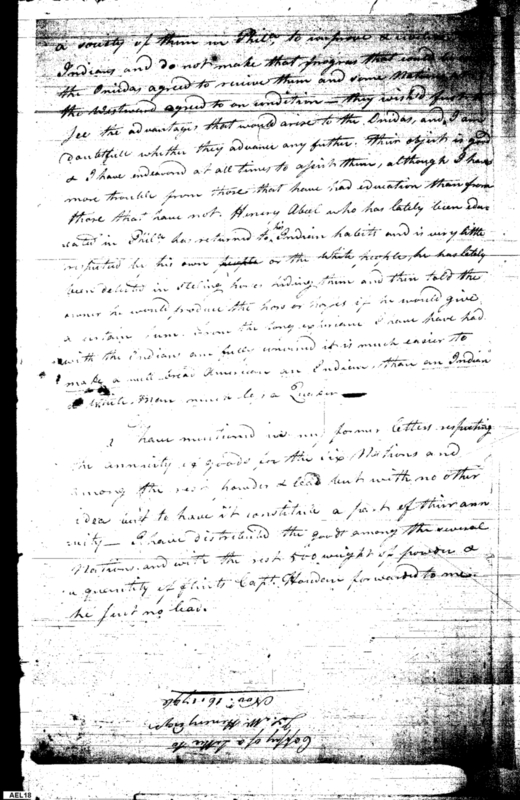 a society of them in Phila, to improve & civilize
Indians, and do not make that progress that could
the Onidas agreed to recieve them and some Nations
the Westward agreed to on condition — they wished first to
See the advantages that would arise to the Onidas, and I am
doubtfull whether they advance any futher. Their object is good
& I have endeavord at all times to asist them, although I have
more trouble from those that have had education than from
those that have not. Henery Abeel who has lately been edu
cated in Phila has returned to the Indian habits and is very little
respected by his own people or the White people, he has lately
been detected in Steling horses hiding them and then told the
owner he would produce the hors or horses if he would give
a certain Sum. From the long expirience I have have had
with the Indians am fully convincd it is much easier to
make a well bread American an Indian than an Indian
a White Man much less a Quaker —
I have mentioned in my former letters respecting
the annuity of goods for the six Nations and
among the rest powder & lead but with no other
idea but to have it constitute a part of their ann
uity — I have distributed the goods among the several
Nations and with the rest 500 weight of powder &
a quantity of flints Capt. forwarded to me
he sent no lead.
Coppy of a letter to
Jas. McHenry Esqr
Novr. 16 1796
AEL18